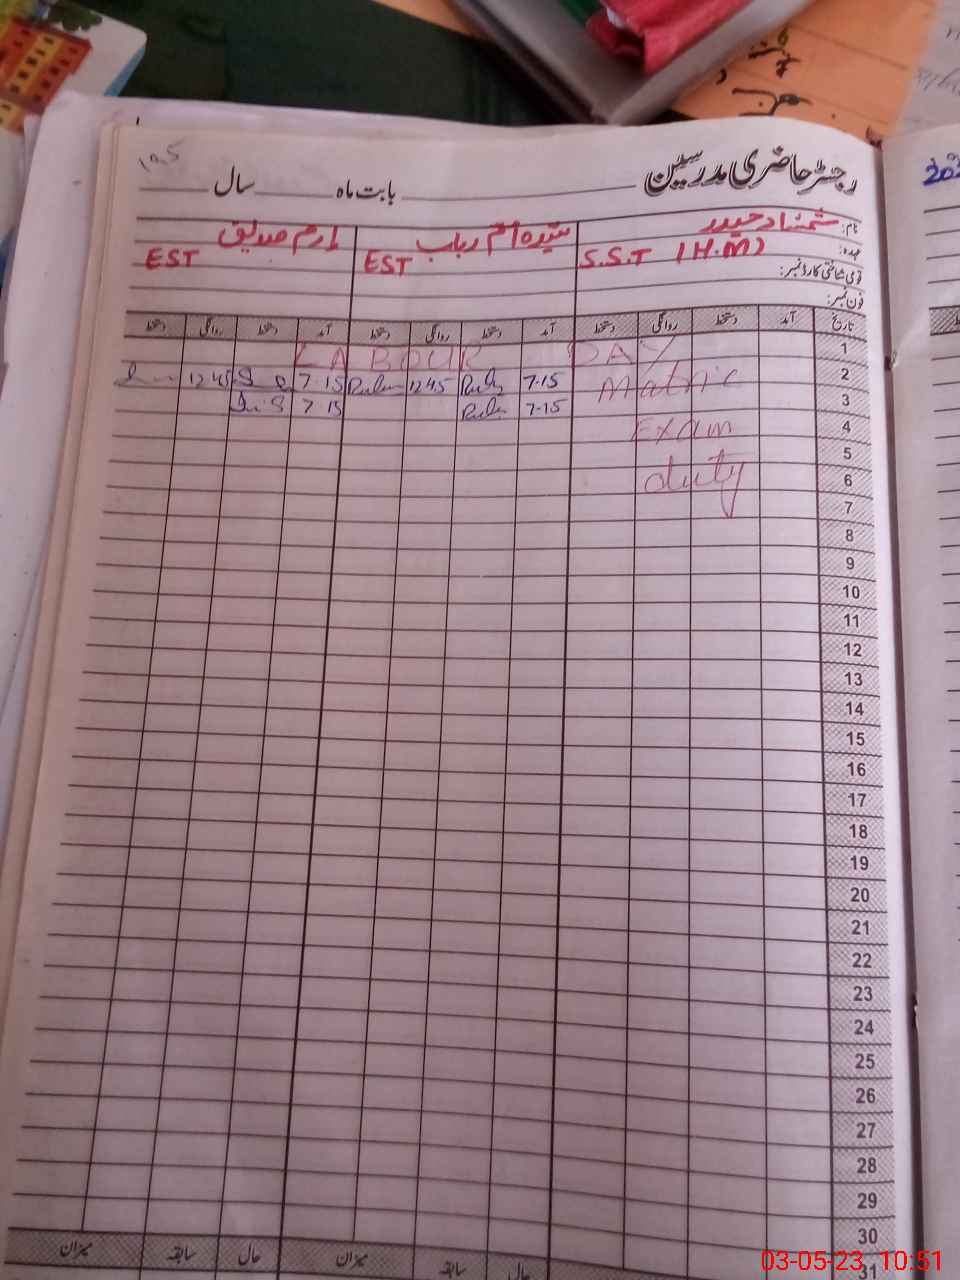 رجسٹر حاضری مدرسین بابت ماہ سال
نام: شمشاد حیدر سیدہ ام رباب ارم صدیق
عہدہ: S.S.T (H.M) EST EST
قومی شناختی کارڈ نمبر:
فون نمبر:
تاریخ آمد دستخط روانگی دستخط آمد دستخط روانگی دستخط آمد دستخط روانگی دستخط
1 LABOUR DAY
2 Matric 7-15 12 45 7-15 12 45
3 7-15 7 15
4 Exam
5
6 duty
7
8
9
10
11
12
13
14
15
16
17
18
19
20
21
22
23
24
25
26
27
28
29
30
31
حال سابقہ میزان حال سابقہ میزان
03-05-23 10:51